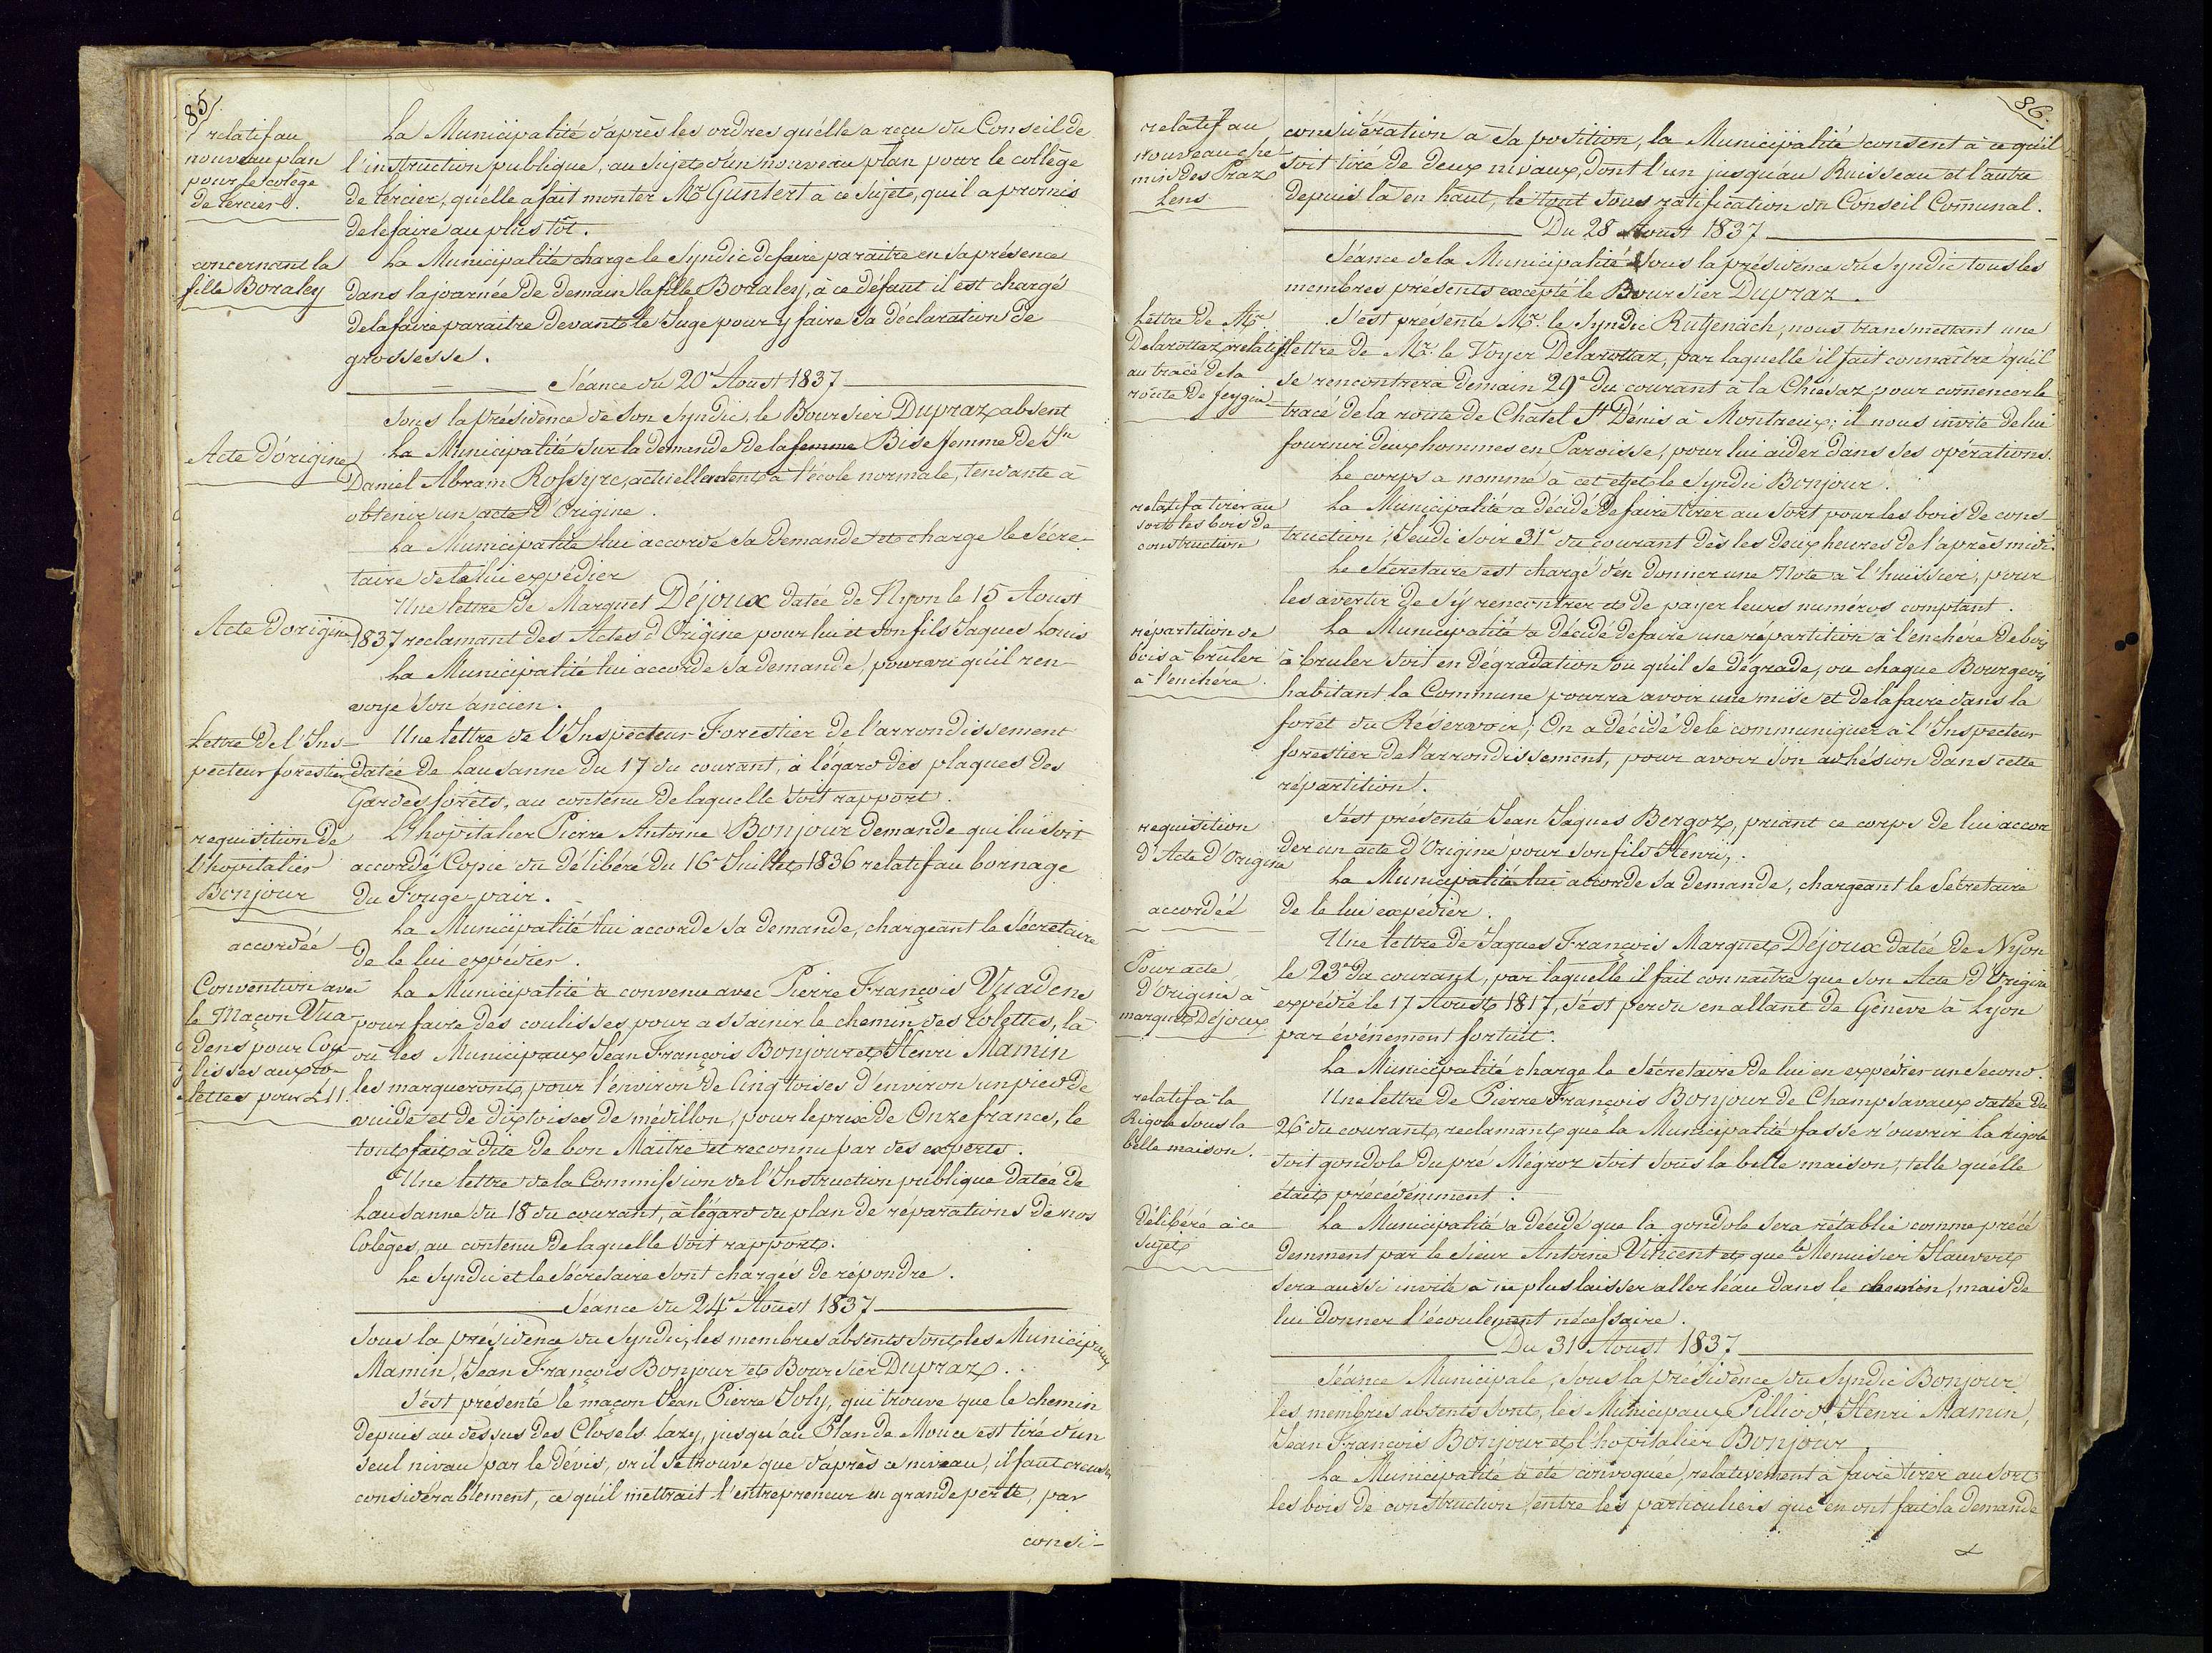 85.
relatif au
nouveau plan
pour le colège
de Tercier.
La Municipalité d'après les ordres qu'elle a reçu du Conseil de
l'instruction publique, au sujet d'un nouveau plan pour le collège
de Tercier, quelle a fait monter Mr Guntert à ce sujet, quil a promis
de le faire au plus tôt.
concernant la
fille Boraley
La Municipalité charge le Syndic de faire paraitre en sa présence
dans la journée de demain la fille Boraley, à ce défaut il est chargé
de la faire paraitre devant le Juge pour y faire sa déclaration de
grossesse.
Séance du 20e Aoust 1837
Sous la présidence de son Syndic, le Boursier Dupraz absent
Acte d'origine
La Municipalité sur la demande de la femme Bise femme de Sn
Daniel Abram Rossyre, actuellement à l'école normale, tendante à
obtenir un acte d'Origine.
La Municipalité lui accorde sa demande et charge le Sécre-
taire de le lui expédier
Acte d'origine
Une lettre de Marguet Déjoux datée de Nyon le 15 Aoust
1837 reclamant des Actes d'Origine pour lui et son fils Jaques Louis
La Municipalité lui accorde sa demande, pourvu qu'il ren-
voye son ancien.
Lettre de l'Ins-
pecteur forestier
Une lettre de l'Inspecteur Forestier de l'arrondissement
datée de Lausanne du 17 du courant, à l'égard des plaques des
Gardes forêts, au contenu de laquelle soit rapport.
requisition de
l'hopitalier
Bonjour
L'hopitalier Pierre Antoine Bonjour demande qui lui soit
accordé Copie du délibéré du 16e Juillet 1836 relatif au bornage
du Fouge-pair.
accordée
La Municipalité lui accorde sa demande, chargeant le Sécretaire
de le lui expédier.
Convention avec
le Maçon Vua-
dens pour Cou-
lisses aux Co-
lettes pour L 11.
La Municipalité a convenu avec Pierre François Vuadens
pour faire des coulisses pour assainir le chemin des Colettes, là
où les Municipaux Jean François Bonjour et Henri Mamin
les marqueront, pour l'environ de Cinq toises d'environ un pied de
vuide et de dix toises de médillon, pour le prix de Onze francs, le
tout fait à dite de bon Maitre et reconnu par des experts.
Une lettre de la Commission de l'Instruction publique datée de
Lausanne du 18 du courant, à l'égard du plan de réparations de nos
Colèges, au contenu de laquelle soit rapport.
Le Syndic et le Sécretaire sont chargés de répondre.
Séance du 24e Aoust 1837
Sous la présidence du Syndic, les membres absents sont les Municipaux
Mamin, Jean François Bonjour et Boursier Dupraz.
S'est présenté le maçon Jean Pierre Joly, qui trouve que le chemin
depuis au dessus des Closels Lazy, jusqu'au Plan de Mouce est tiré d'un
seul nivau par le dévis, or il se trouve que d'après ce niveau, il faut creuser
considérablement, ce qu'il mettrait l'entrepreneur en grande perte, par
consi-
86.
relatif au
nouveau che-
min des Praz
Lens
considération à sa position, la Municipalité consent à ce qu'il
soit tiré de deux nivaux, dont l'un jusqu'au Ruisseau et l'autre
depuis là en haut, le tout sous ratification du Conseil Comunal.
Du 28 Aoust 1837
Séance de la Municipalité sous la présidence du Syndic tous les
membres présents excepté le Boursier Dupraz.
Lettre de Mr
Delarottaz, relatif
au tracé de la
route de feygire
S'est presenté Mr. le Syndic Rutjenach, nous transmettant une
lettre de Mr. le Voyer Delarottaz, par laquelle il fait connaître qu'il
se rencontrera demain 29e du courant à la Chiésaz pour comencer le
tracé de la route de Chatel St Denis à Montreux; il nous invite de lui
fournir deux hommes en Paroisse, pour lui aider dans ses opérations.
Le corps a nommé à cet effet le Syndic Bonjour.
relatif à tirer au
sort les bois de
construction
La Municipalité a décidé de faire tirer au sort pour les bois de cons-
truction, Jeudi soir 31e du courant dès les deux heures de l'après midi.
Le Sécretaire est chargé d'en donner une Note à l'huissier, pour
les avertir de s'y rencontrer et de payer leurs numéros comptant.
répartition de
bois à brûler
à l'enchere.
La Municipalité a décidé de faire une répartition à l'enchére de bois
à bruler soit en dégradation ou qu'il se dégrade, ou chaque Bourgeois
habitant la Commune pourra avoir une mise et de la faire dans la
forêt du Réservoir; On a décidé de le communiquer à l'Inspecteur
forestier de l'arrondissement, pour avoir son adhésion dans cette
répartition.
requisition
d'Acte d'Origine
S'est présenté Jean Jaques Bergoz, priant ce corps de lui accor
der un acte d'Origine pour son fils Henri.
accordée
La Municipalité lui accorde sa demande, chargeant le Sécretaire
de le lui expédier.
Pour acte
d'Origine à
marguet Dejoux
Une lettre de Jaques François Marguet Déjoux datée de Nyon
le 23e du courant, par laquelle il fait connaitre que son Acte d'Origine
expédié le 17 Aoust 1817, s'est perdu en allant de Génève à Lyon
par événement fortuit.
La Municipalité charge le Sécretaire de lui en expédier un second.
relatif à la
Rigole sous la
belle maison.
Une lettre de Pierre François Bonjour de Champsavaux datée du
26e du courant, reclamant que la Municipalité fasse r'ouvrir la Rigole
soit gondole du pré Mégroz soit sous la belle maison, telle qu'elle
était précédemment.
Délibéré à ce
Sujet
La Municipalité a décidé que la gondole sera rétablie comme précé
demment par le Sieur Antoine Vincent et que le Menuisier Hauvert
sera aussi invité à ne plus laisser aller l'eau dans le chemin, mais de
lui donner l'écoulement nécessaire.
Du 31 Aoust 1837
Séance Municipale, sous la présidence du Syndic Bonjour
les membres absents sont, les Municipaux Pilliod, Henri Mamin,
Jean François Bonjour et l'hopitalier Bonjour
La Municipalité a été convoquée, relativement à faire tirer au sort
les bois de construction, entre les particuliers que en ont fait la demande